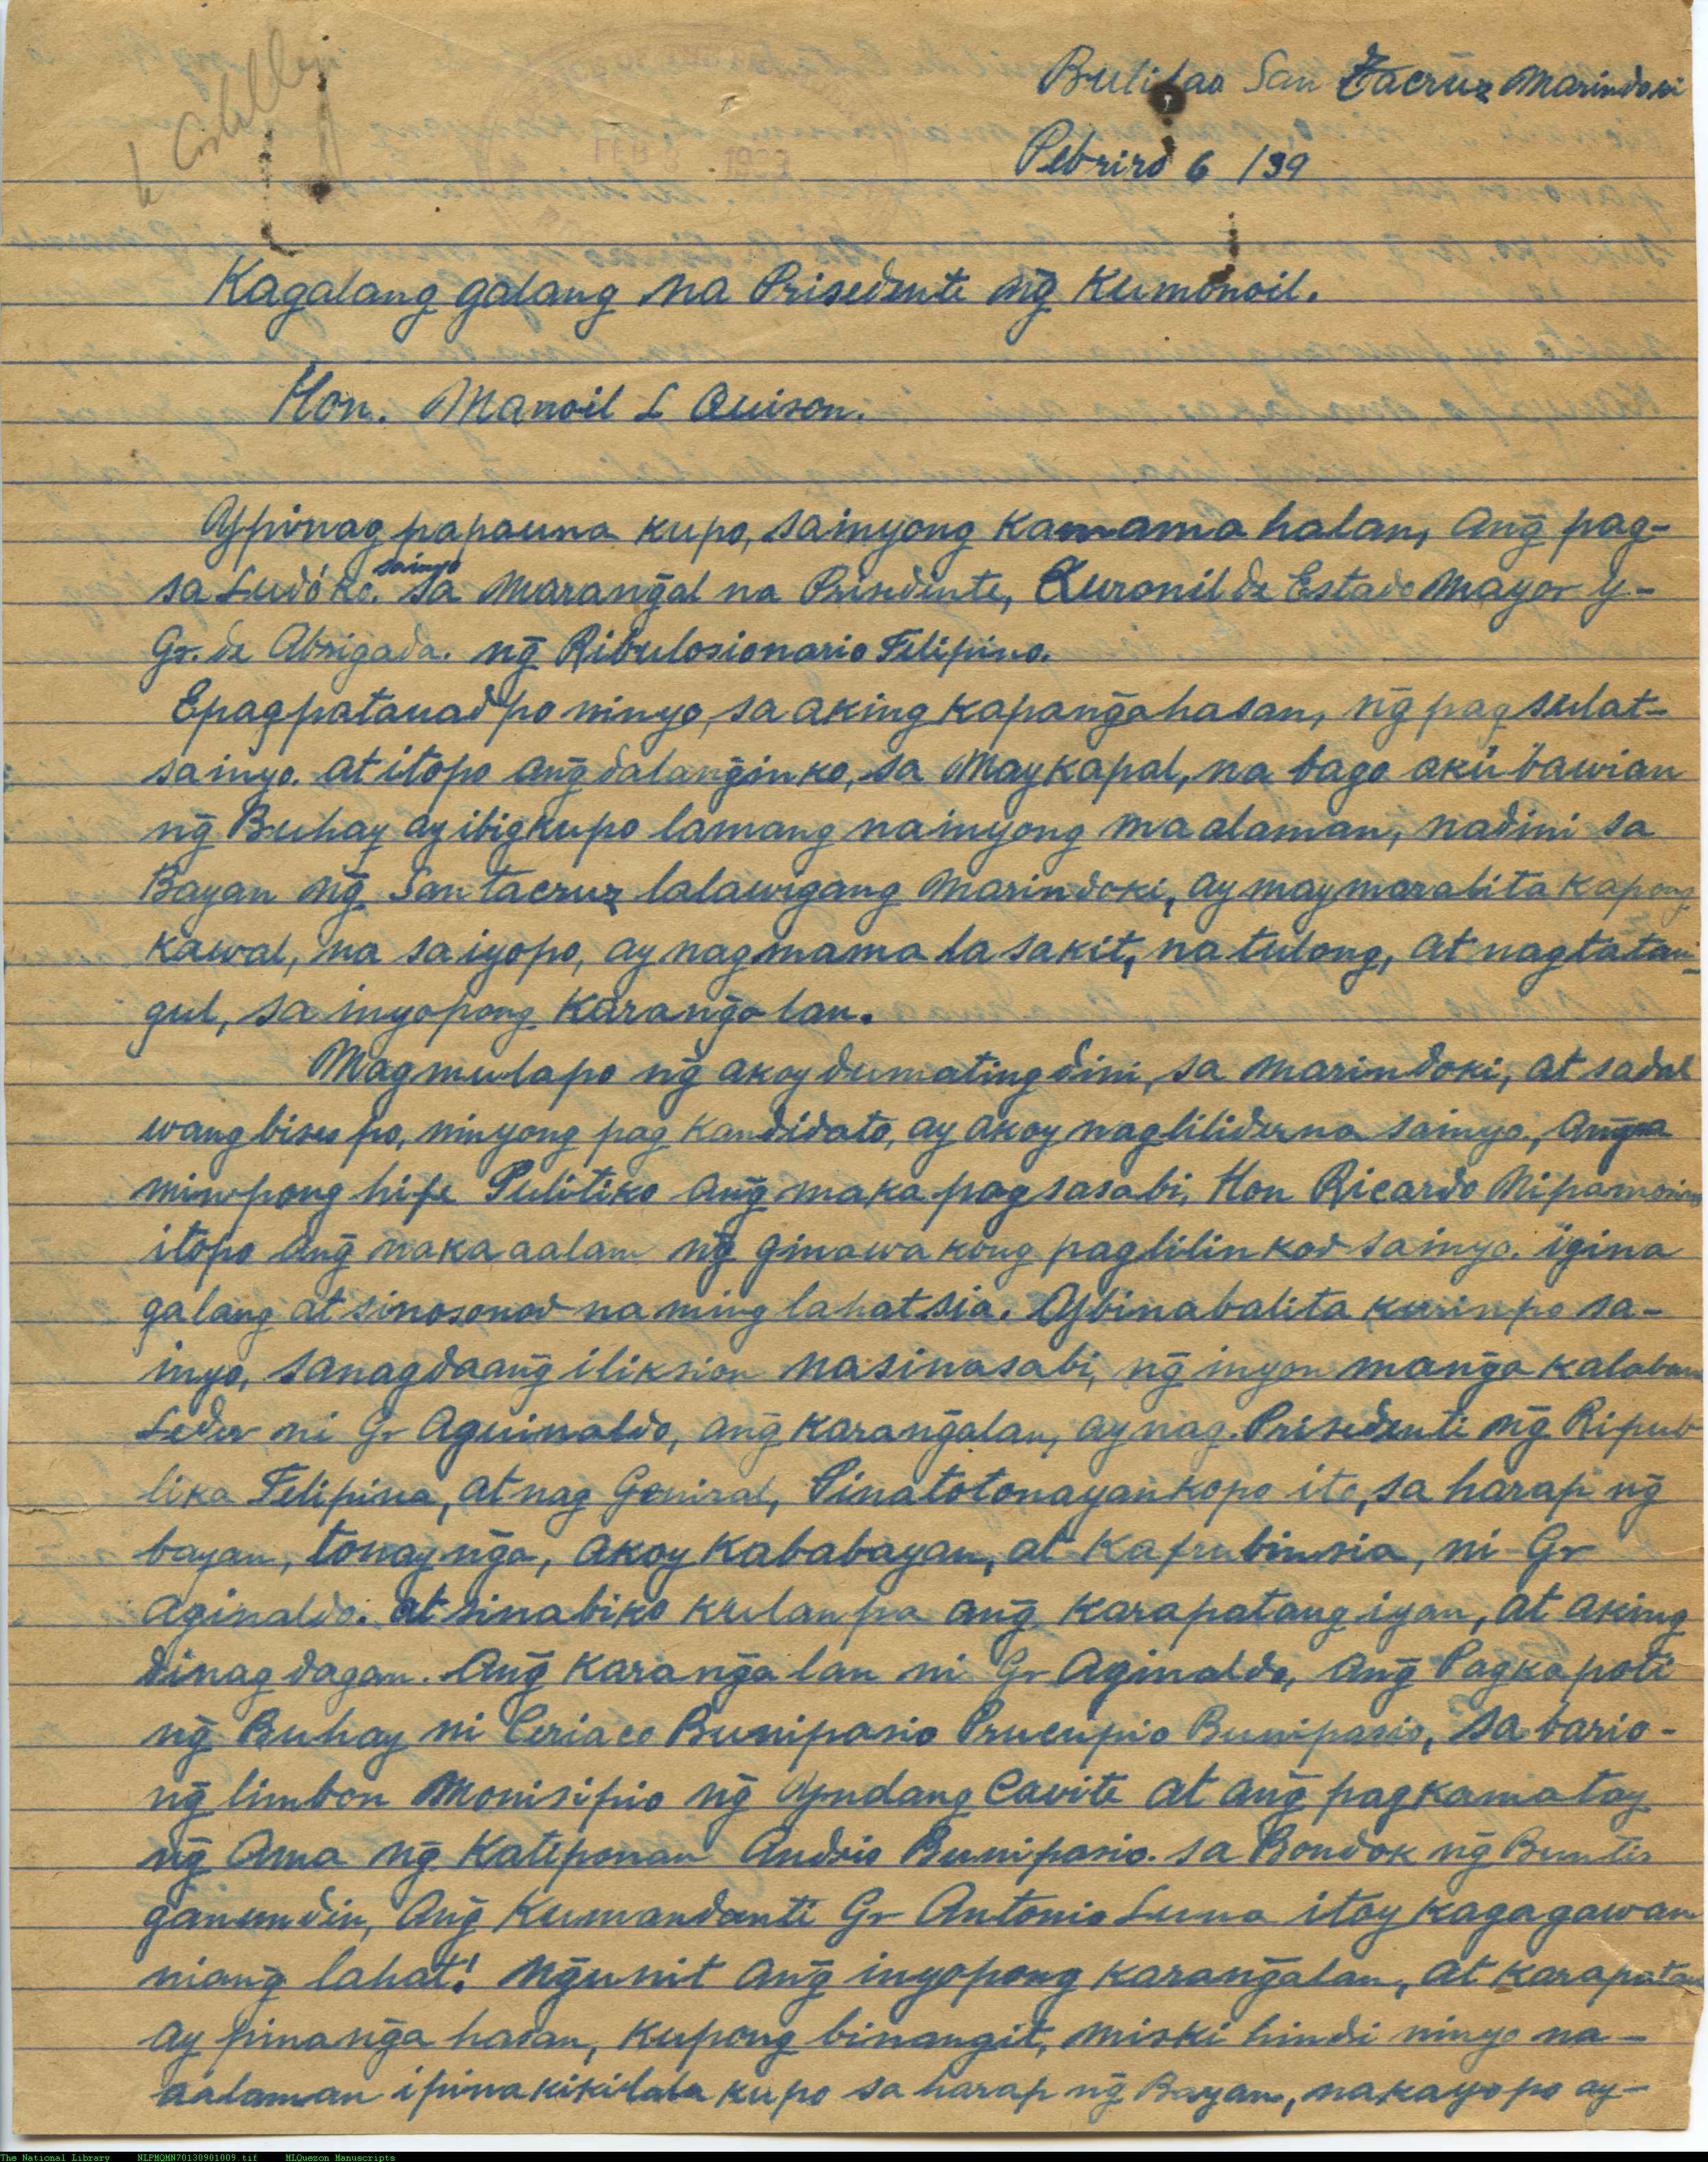 Butilao San Tacruz Marindoki
Pebriro 6 /39
FEB 1939
Kagalang galang na Prisedente ng̃ Kumonoil.
Hon. Manoil L Quison.
Aypinag papauna kupo, sainyong kamama halan, ang̃ pag-
sa Ludóko. sainyo sa Marang̃al na Prisedente, Kuronil de Estado Mayor y-
Gr. de Abrigada. ng̃ Ribulosionario Filipino.
Epagpatauad po ninyo, sa aking kapang̃ahasan, ng̃ pag sulat-
sainyo. at itopo ang̃ dalang̃in ko, sa Maykapal, na bago akü bawian
ng̃ Buhay ay ibigkupo lamang nainyong ma alaman, nadini sa
Bayan ng̃ San tacruz lalawigang Marindoki, ay maymaralita kapong
kawal, na sa iyopo, ay nagmama la sakit, na tulong, at nagtatan-
gul, sa inyopong karang̃a lan.
Magmulapo ng̃ akoy dumating dini, sa marindoki, at sadal
wang bises po, ninyong pag kandidato, ay akoy naglilider na sainyo.,
minpong hife Pulitiko ang̃ maka pag sasabi, Hon Ricardo Nipamosino
itopo ang̃ naka aalam ng̃ ginawa kong paglilin kod sa inyo. igina
galang at sinosonod na ming lahat sia. Aybinabalita kurinpo sa-
inyo, sanagdaang̃ iliksion nasinasabi, ng̃ inyon mang̃a kalaban
Leder ni Gr Aguinaldo, ang̃ karang̃alan, ay nag. Prisedenti ng̃ Ripub
lika Filipina, at nag Geniral, Pinatotonayankopo ito, sa harap ng̃
bayan, tonay ng̃a, akoy kababayan, at kaprubinsia, ni Gr
Aginaldo. at sinabiko kulan pa ang̃ karapatang iyan, at aking
dinag dagan. Ang̃ karang̃a lan ni Gr Aginaldo, ang̃ Pagka poti
ng̃ Buhay ni Ceriaco Bunipasio Prucupio Bunipasio, sa bario-
ng̃ limbon Monisipio ng̃ Yndang Cavite at ang̃ pagkamatay
ng̃ Ama ng̃ Kateponan Andris Bunipasio. sa Bondok ng̃ Buntis
ganundin, ang̃ Kumandanti Gr Antonio Luna itay kagagawan
niang̃ lahat! Ng̃unit ang̃ inyopong karang̃alan, at karapatan
ay pinang̃a hasan, kupong binangit, miski hindi ninyo na-
aalaman ipinakikilala kupo sa harap ng̃ Bayan, nakayo po ay-
The National Library NLPMQMN70130901009.tif MLQuezon Manuscripts